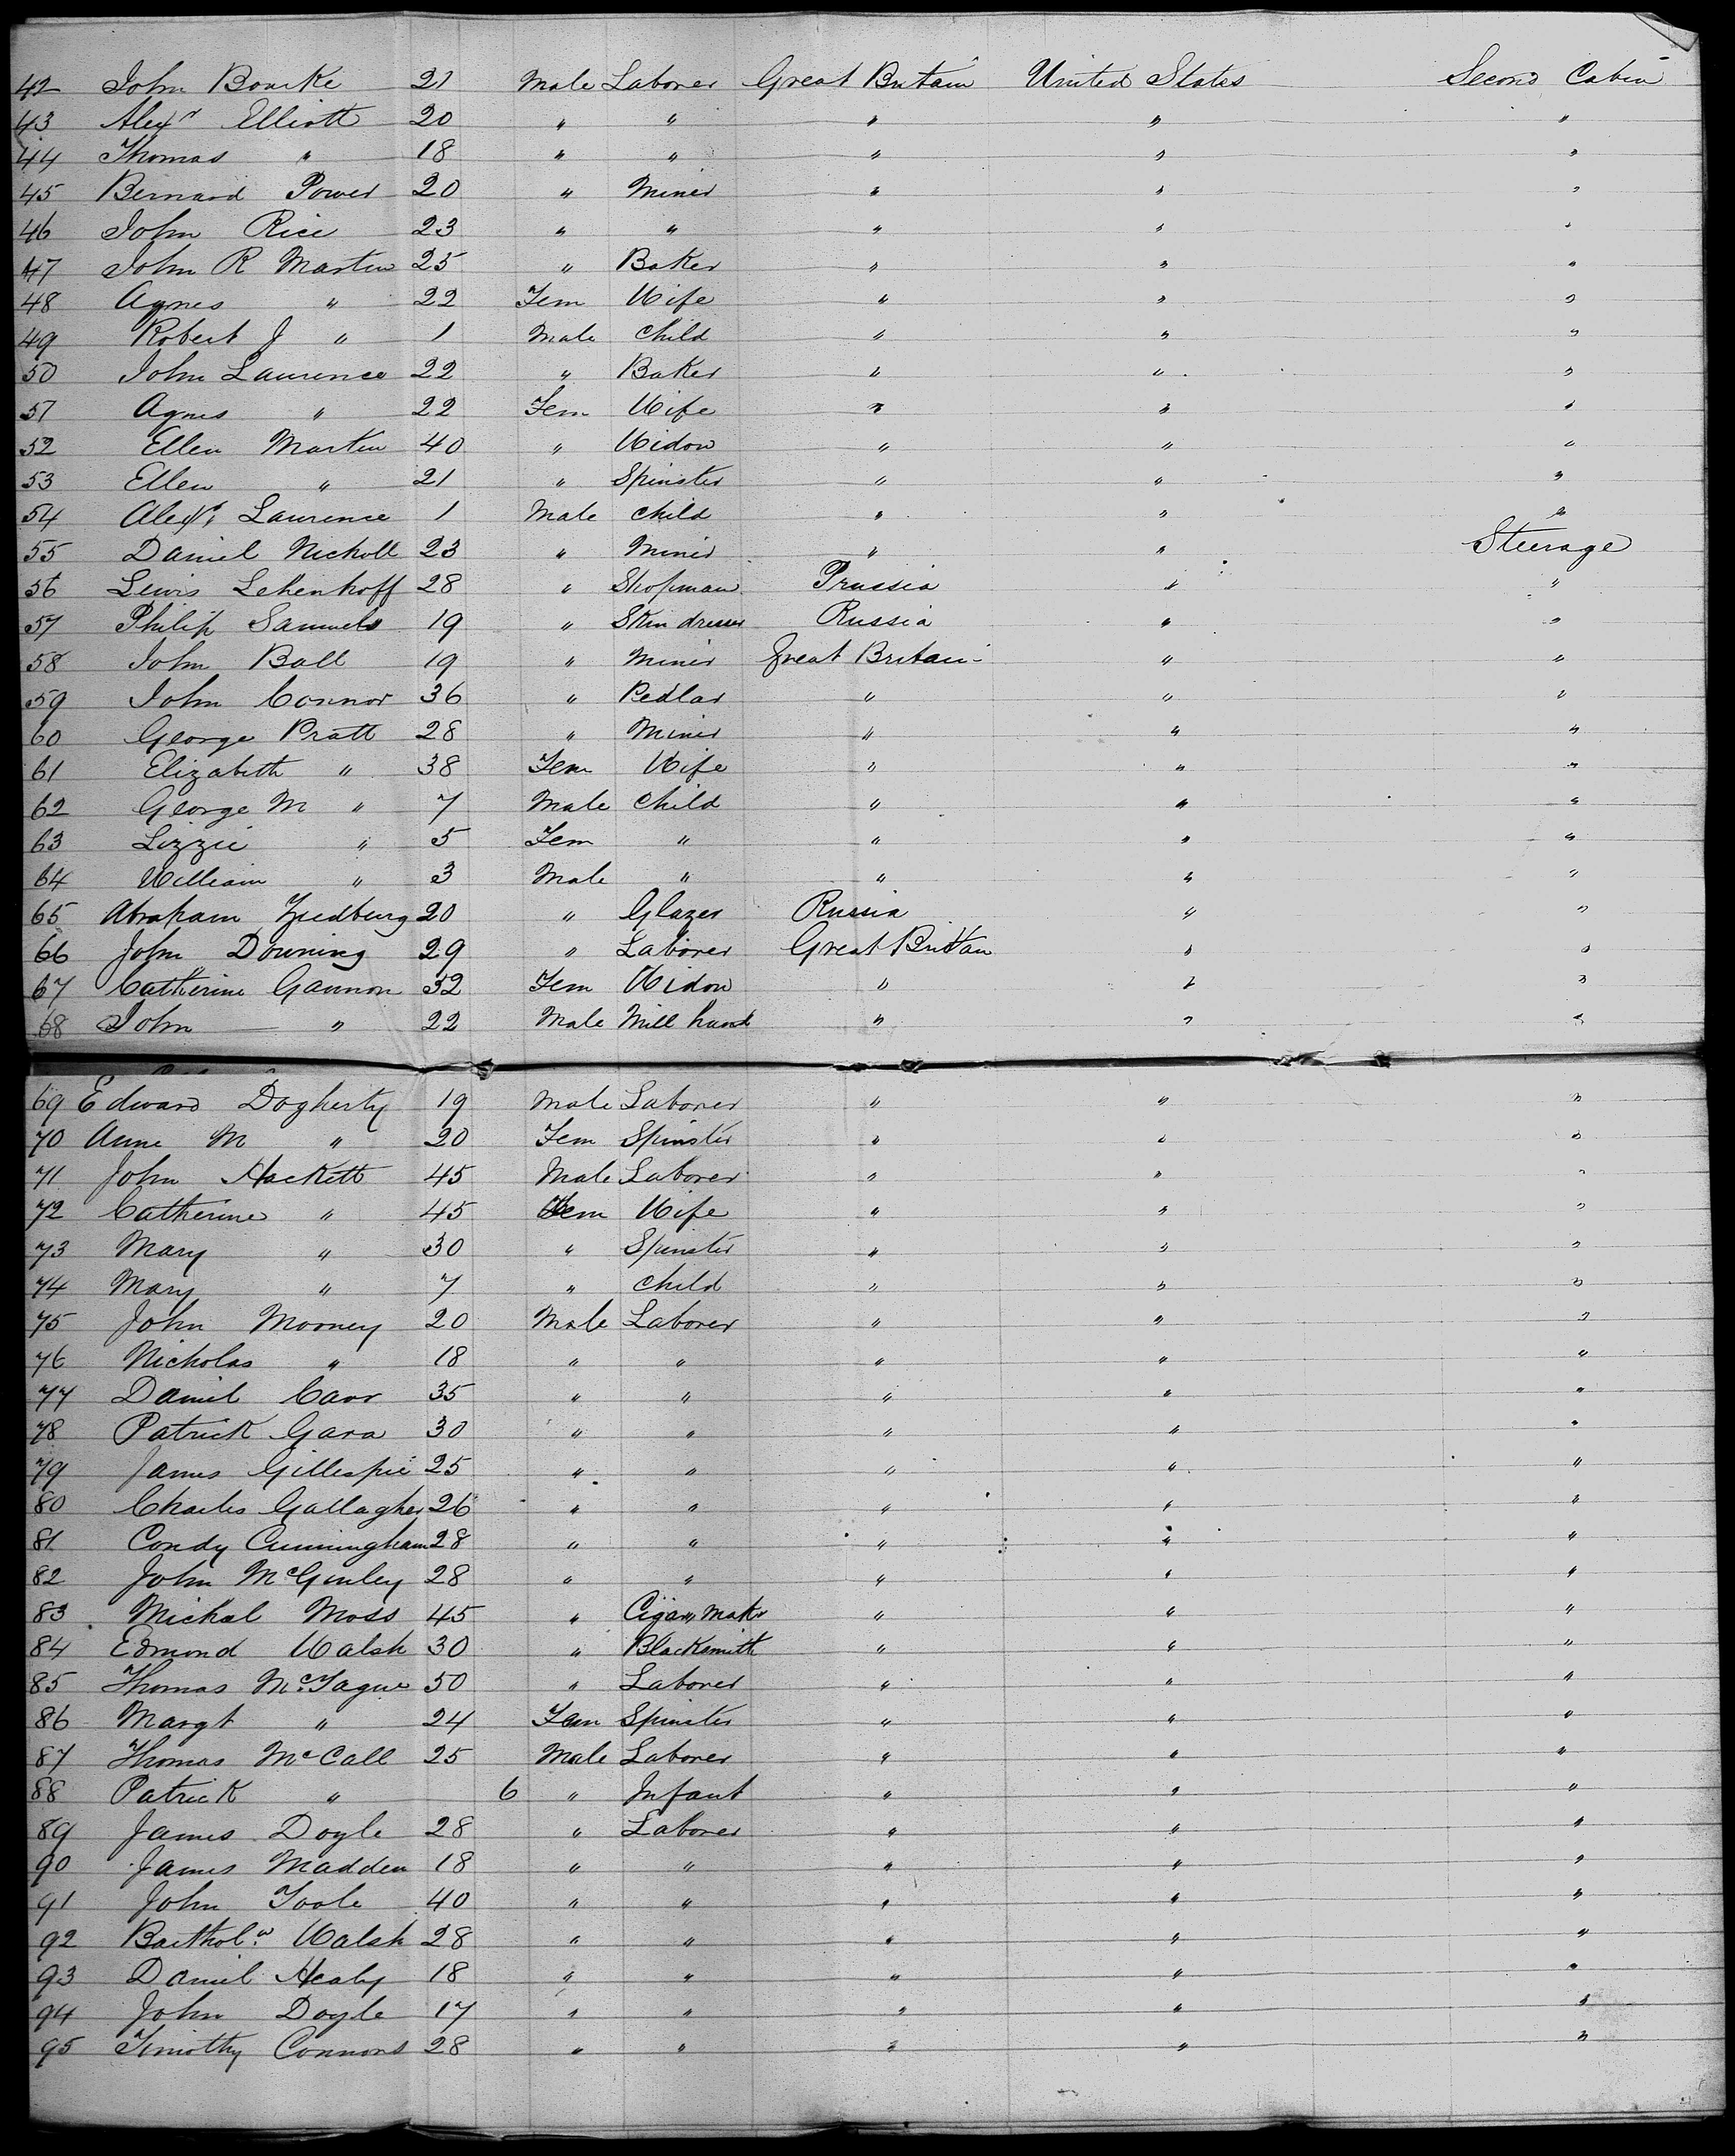 42 John Bourke 21 Male Laborer Great Britain United States Second Cabin
43 Alexr Elliott 20 " " " " "
44 Thomas " 18 " " " " "
45 Bernard Power 20 " Miner " " "
46 John Rice 23 " " " " "
47 John R Martin 25 " Baker " " "
48 Agnes " 22 Fem Wife " " "
49 Robert J " 1 Male Child " " "
50 John Laurence 22 " Baker " " "
51 Agnes " 22 Fem Wife " " "
52 Ellen Martin 40 " Widow " " "
53 Ellen " 21 " Spinster " " "
54 Alexr Laurence 1 Male Child " " "
55 Daniel Nicholl 23 " Miner " " Steerage
56 Lewis Lehenhoff 28 " Shopman Prussia " "
57 Philip Samuels 19 " Skin dresser Russia " "
58 John Ball 19 " Miner Great Britain " "
59 John Connor 36 " Pedlar " " "
60 George Pratt 28 " Miner " " "
61 Elizabeth " 38 Fem Wife " " "
62 George M " 7 Male Child " " "
63 Lizzie " 5 Fem " " " "
64 William " 3 Male " " " "
65 Abraham 20 " Glazer Russia " "
66 John Downing 29 " Laborer Great Brittan " "
67 Catherine Gannon 32 Fem Widow " " "
68 John " 22 Male Mill hand " " "
69 Edward Dogherty 19 Male Laborer " " "
70 Anne M " 20 Fem Spinster " " "
71 John Hackett 45 Male Laborer " " "
72 Catherine " 45 Fem Wife " " "
73 Mary " 30 " Spinster " " "
74 Mary " 7 " Child " " "
75 John Mooney 20 Male Laborer " " "
76 Nicholas " 18 " " " " "
77 Daniel Carr 35 " " " " "
78 Patrick Gara 30 " " " " "
79 James Gillespie 25 " " " " "
80 Charles Gallagher 26 " " " " "
81 Condy Cunningham 28 " " " " "
82 John McGinley 28 " " " " "
83 Michael Moss 45 " Cigar Maker " " "
84 Edmond Walsh 30 " Blacksmith " " "
85 Thomas McTague 50 " Laborer " " "
86 Margt " 24 Fem Spinster " " "
87 Thomas McCall 25 Male Laborer " " "
88 Patrick " 6 " Infant " " "
89 James Doyle 28 " Laborer " " "
90 James Madden 18 " " " " "
91 John Toole 40 " " " " "
92 Bartholw Walsh 28 " " " " "
93 Daniel Healy 18 " " " " "
94 John Doyle 17 " " " " "
95 Timothy Connors 28 " " " " "